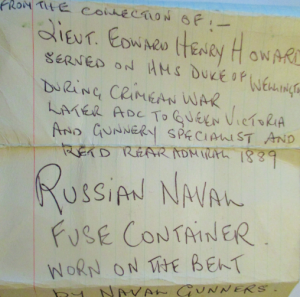 FROM THE COLLECTION OF:-
LIEUT. EDWARD HENRY HOWARD
SERVED ON HMS DUKE OF WELLINGTON
DURING CRIMEAN WAR
LATER ADC TO QUEEN VICTORIA
AND GUNNERY SPECIALIST AND
RETD REAR ADMIRAL 1889
RUSSIAN NAVAL
FUSE CONTAINER.
WORN ON THE BELT
BY NAVAL GUNNERS.